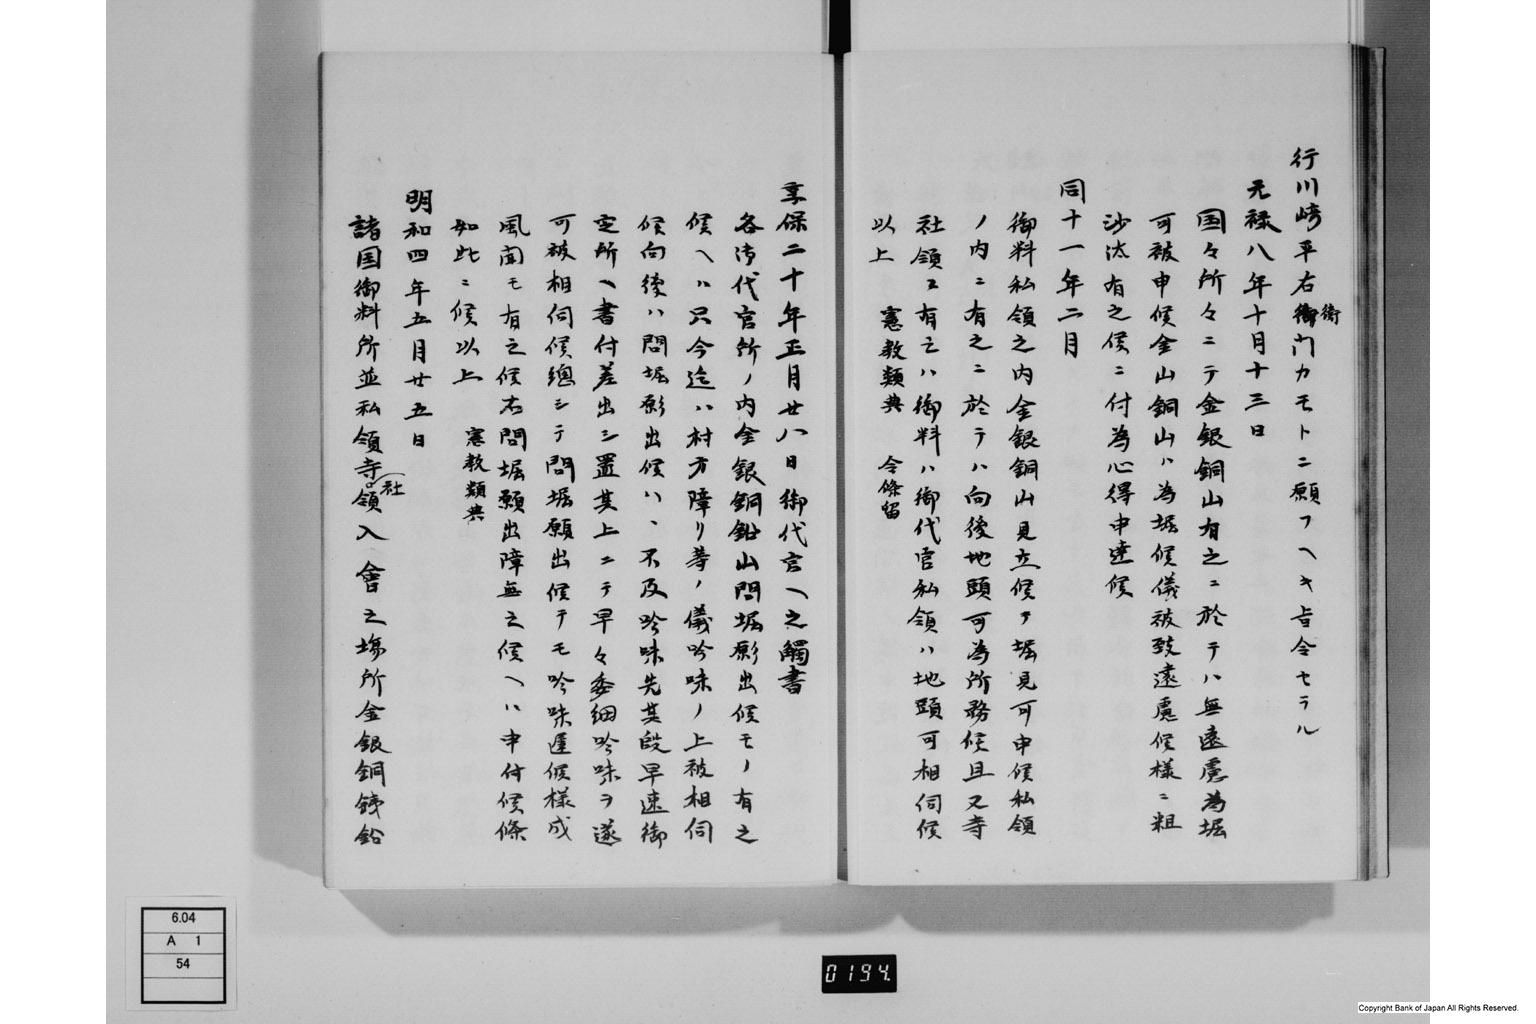 行川崎平右衛門カモトニ願フヘキ旨令セラル
衛
元禄八年十月十三日
国々所々ニテ金銀銅山有之ニ於テハ無遠慮為堀
可被申候金山銅山ハ為堀候儀被致遠慮候様ニ粗
沙汰有之候ニ付為心得申達候
同十一年二月
御料私領之内金銀銅山見立候ヲ堀見可申候私領
ノ内ニ有之ニ於テハ向後地頭可為所務候且又寺
社領ニ有之ハ御料ハ御代官私領ハ地頭可相伺候
以上　憲教類典　令條留
享保二十年正月廿八日御代官ヘ之觸書
各御代官所ノ内金銀銅鉛山問堀願出候モノ有之
候ヘハ只今迄ハ村方障リ等ノ儀吟味ノ上被相伺
候向後ハ問堀願出候ハヽ不及吟味先其段早速御
定所ヘ書付差出シ置其上ニテ早々委細吟味ヲ遂
可被相伺候總シテ問堀願出候テモ吟味遅候様成
風聞モ有之候右問堀願出障無之候ヘハ申付候條
如此ニ候以上　憲教類典
明和四年五月廿五日
諸国御料所並私領寺領入會之場所金銀銅銕鉛
社
0194.
6.04
A 1
54
Copyright Bank of Japan All Rights Reserved.